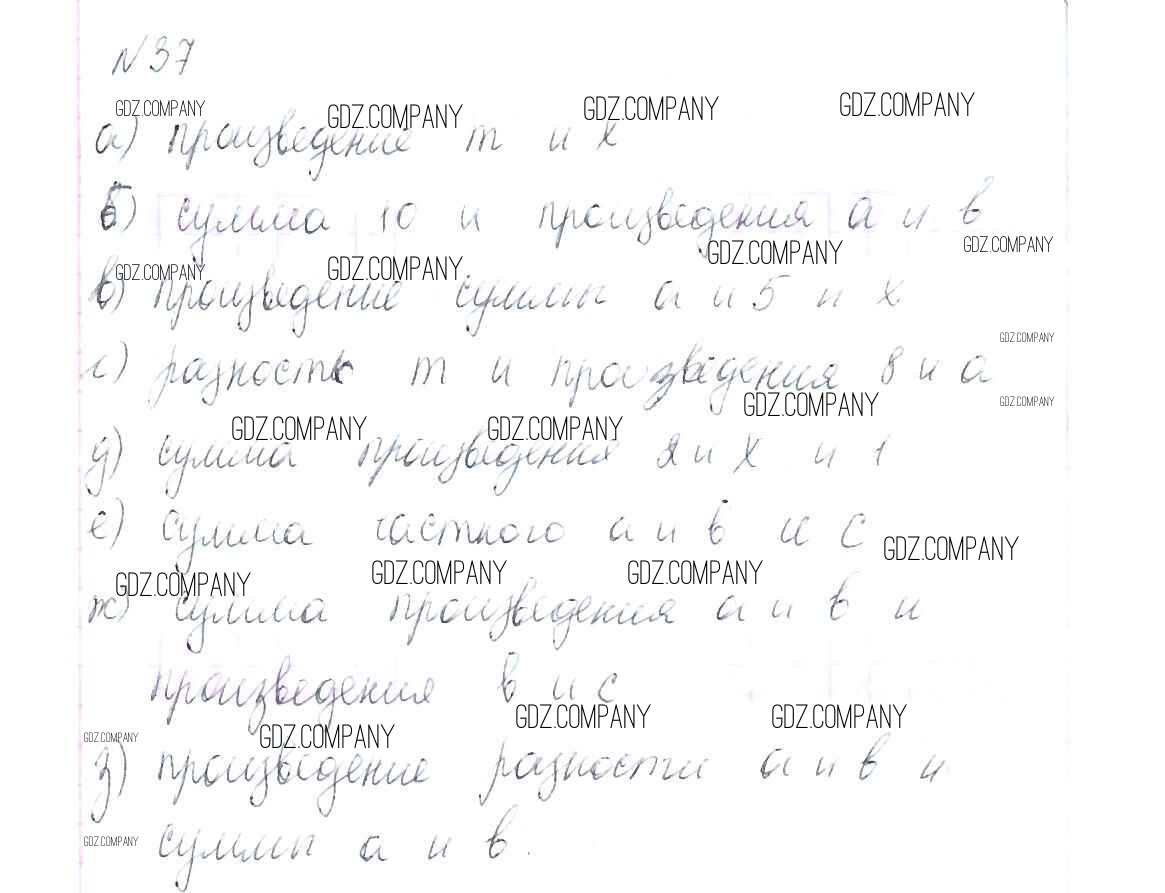 №37
GDZ.COMPANY GDZ.COMPANY GDZ.COMPANY GDZ.COMPANY
а) произведение m и x
б) сумма 10 и произведения а и в
GDZ.COMPANY GDZ.COMPANY
GDZ.COMPANY GDZ.COMPANY
в) произведение суммы а и 5 и x
GDZ.COMPANY
г) разность m и произведения 8 и а
GDZ.COMPANY GDZ.COMPANY
GDZ.COMPANY GDZ.COMPANY
д) сумма произведения 2 и x и 1
е) сумма частного а и в и с
GDZ.COMPANY
GDZ.COMPANY GDZ.COMPANY GDZ.COMPANY
ж) сумма произведения а и в и
произведения в и с
GDZ.COMPANY GDZ.COMPANY
GDZ.COMPANY GDZ.COMPANY
з) произведение разности а и в и
GDZ.COMPANY
суммы а и в.